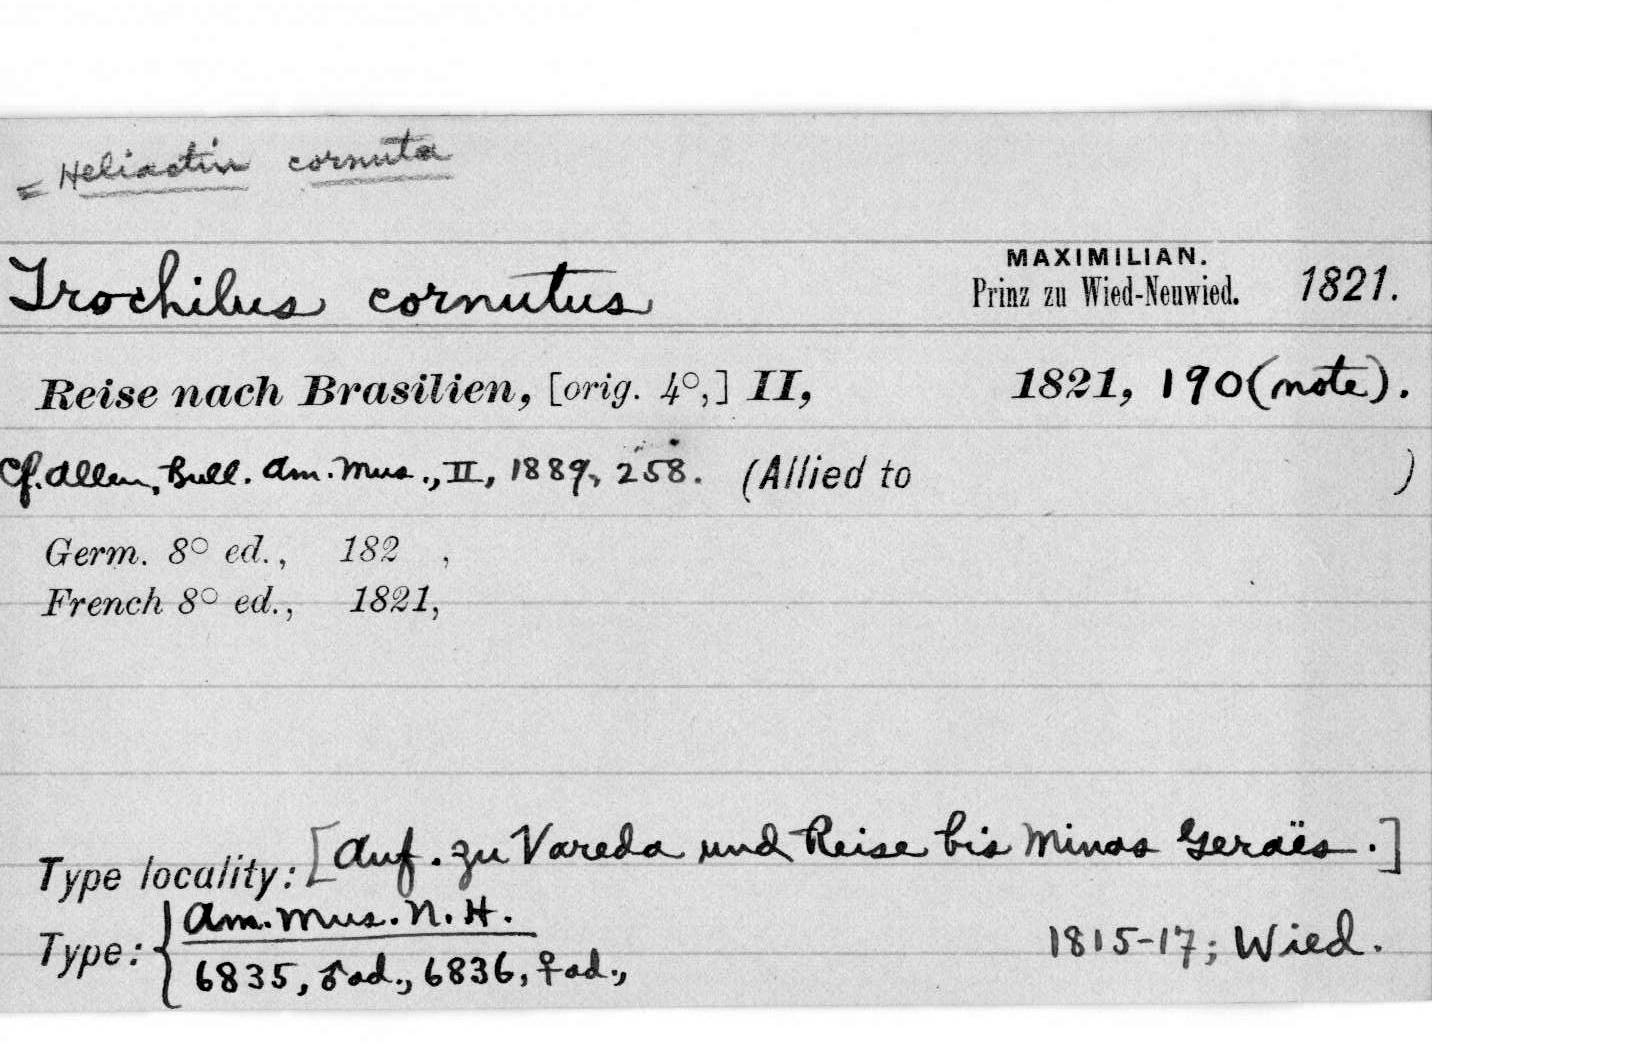 = Heliactin cornuta
MAXIMILIAN.
Trochilus cornutus Prinz zu Wied-Neuwied. 1821.
Reise nach Brasilien, [orig. 4°,] II, 1821, 190 (note).
Cf. Allen, Bull. Am. Mus., II, 1889, 258. (Allied to )
Germ. 8° ed., 182 ,
French 8° ed., 1821,
Type locality: [Auf. zu Vareda und Reise bis Minas Geraës.]
Type: { Am. Mus. N. H.
6835, ♂ ad., 6836, ♀ ad., 1815-17; Wied.